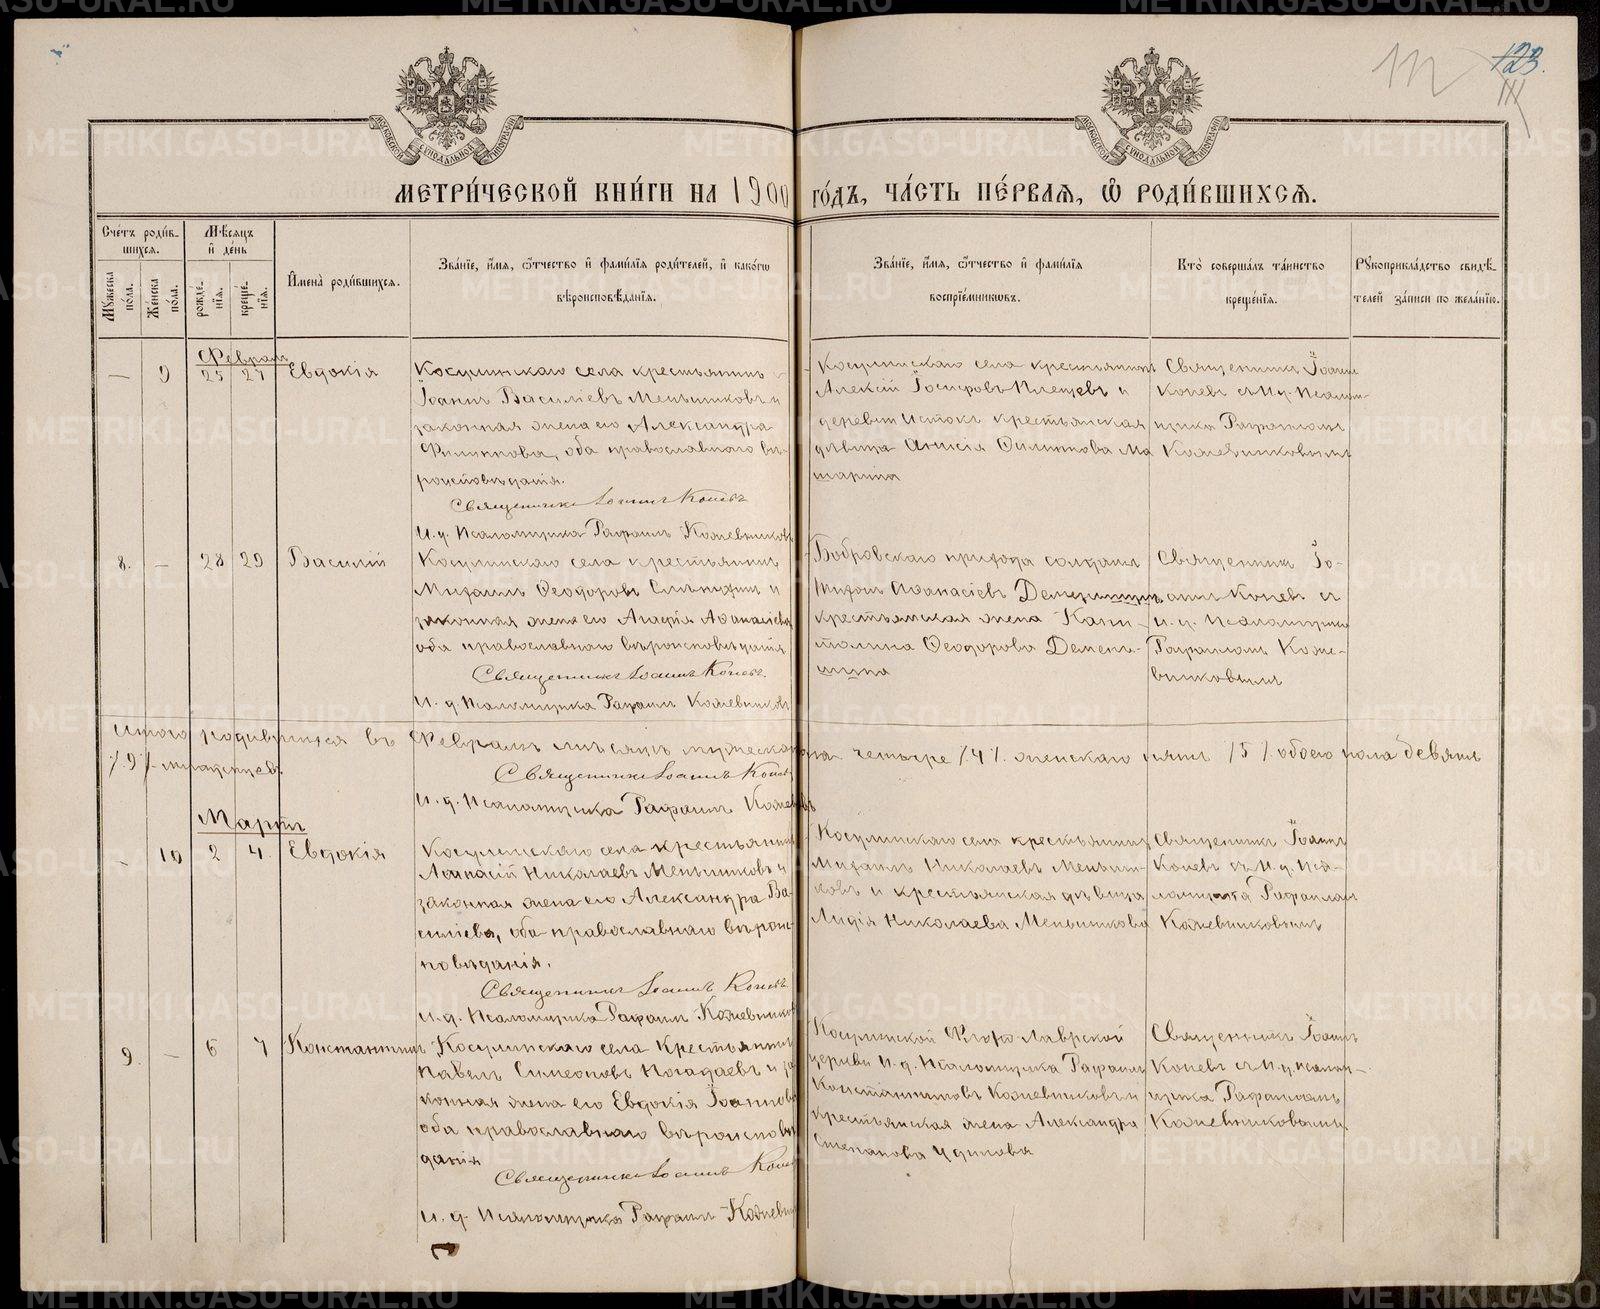 123.
МОСКОВСКОЙ СѴНОДАЛЬНОЙ ТИПОГРАФІИ
МОСКОВСКОЙ СѴНОДАЛЬНОЙ ТИПОГРАФІИ
МЕТРИ́ЧЕСКОЙ КНИ́ГИ НА 1900 ГО́ДЪ, ЧА́СТЬ ПЕ́РВАѦ, Ѽ РОДИ́ВШИХСѦ.
Сче́тъ роди́в-
шихся.
Мѣсяцъ
и҆ де́нь
Мꙋ́жеска по́ла.
Же́нска по́ла.
рожде́-нїѧ.
креще́-нїѧ.
И҆мена̀ роди́вшихся.
Зва́нїе, и҆́мѧ, ѻ҆́тчество и҆ фами́лїѧ роди́телей, и҆ како́гѡ
вѣроисповѣ́данїѧ.
Зва́нїе, и҆́мѧ, ѻ҆́тчество и҆ фами́лїѧ
воспрїе́мникѡвъ.
Кто̀ соверша́лъ та́инство
креще́нїѧ.
Рꙋкоприкла́дство свидѣ́-
телей за́писи по жела́нїю.
Февраль
— 9 25 27 Евдокія
Косулинскаго села крестьянинъ
Іоаннъ Василіевъ Меньшиковъ и
законная жена его Александра
Филиппова, оба православнаго вѣ-
роисповѣданія.
Священникъ Іоаннъ Коневъ
И. д. Псаломщика Рафаилъ Кожевниковъ
Косулинскаго села крестьянинъ
Алексій Іосифовъ Плещевъ и
деревни Истокъ крестьянская
дѣвица Анисія Филиппова Ма
шарина
Священникъ Іоаннъ
Коневъ съ И. д. Псалом-
щика Рафаиломъ
Кожевниковымъ
8. — 28 29 Василій
Косулинскаго села крестьянинъ
Михаилъ Ѳеодоровъ и
законная жена его Агафія Аѳанасіева
оба православнаго вѣроисповѣданія
Священникъ Іоаннъ Коневъ.
И. д. Псаломщика Рафаилъ Кожевниковъ
Бобровскаго прихода солдатъ
Тихонъ Аѳанасіевъ Деменьшинъ
крестьянская жена Капи-
толина Ѳеодорова Демень-
шина
Священникъ Іо-
аннъ Коневъ съ
и. д. Псаломщика
Рафаиломъ Коже-
вниковымъ
Итого родившихся въ Февралѣ мѣсяцѣ мужескаго пола четыре /4/ женскаго пять /5/ обоего пола девять
/9/ младенцевъ.
Священникъ Іоаннъ Коневъ
И. д. Псаломщика Рафаилъ Кожевниковъ
Мартъ
— 10 2 4. Евдокія
Косулинскаго села крестьянинъ
Аѳанасій Николаевъ Меньшиковъ и
законная жена его Александра Ва-
силіева, оба православнаго вѣроис-
повѣданія.
Священникъ Іоаннъ Коневъ
И. д. Псаломщика Рафаилъ Кожевниковъ
Косулинскаго села крестьянинъ
Михаилъ Николаевъ Меньши-
ковъ и крестьянская дѣвица
Лидія Николаева Меньшикова
Священникъ Іоаннъ
Коневъ съ И. д. Пса-
ломщика Рафаиломъ
Кожевниковымъ
9. — 6 7 Константинъ
Косулинскаго села Крестьянинъ
Павелъ Симеоновъ Погадаевъ и за-
конная жена его Евдокія Іоаннова
оба православнаго вѣроисповѣ
данія
Священникъ Іоаннъ Коневъ
И. д. Псаломщика Рафаилъ Кожевниковъ
Косулинской Флоро-Лаврской
церкви И. д. Псаломщика Рафаилъ
Константиновъ Кожевниковъ и
крестьянская жена Александра
Степанова
Священникъ Іоаннъ
Коневъ съ И. д. Псалом-
щика Рафаиломъ
Кожевниковымъ
METRIKI.GASO-URAL.RU